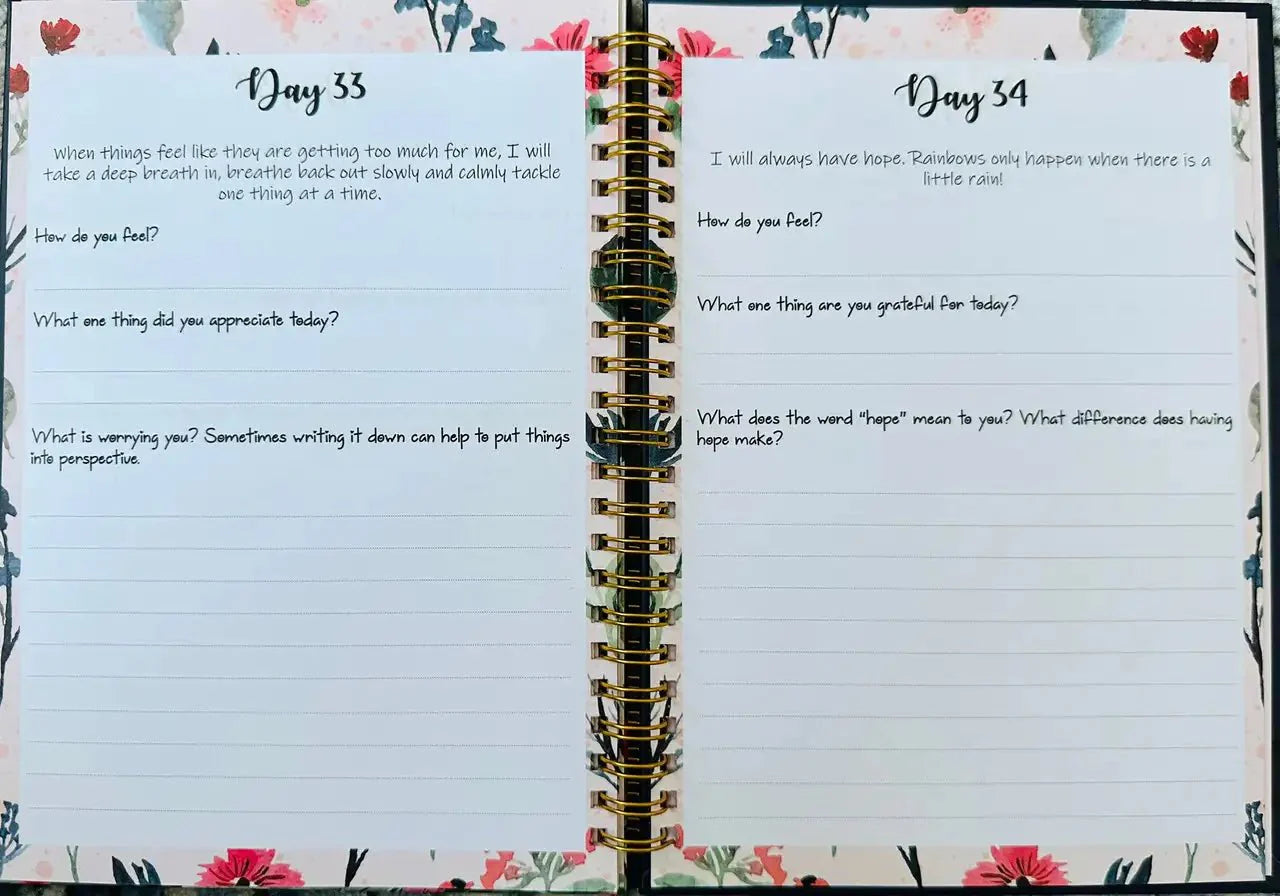 Day 33
When things feel like they are getting too much for me, I will
take a deep breath in, breathe back out slowly and calmly tackle
one thing at a time.
How do you feel?
What one thing did you appreciate today?
What is worrying you? Sometimes writing it down can help to put things
into perspective.
Day 34
I will always have hope. Rainbows only happen when there is a
little rain!
How do you feel?
What one thing are you grateful for today?
What does the word "hope" mean to you? What difference does having
hope make?